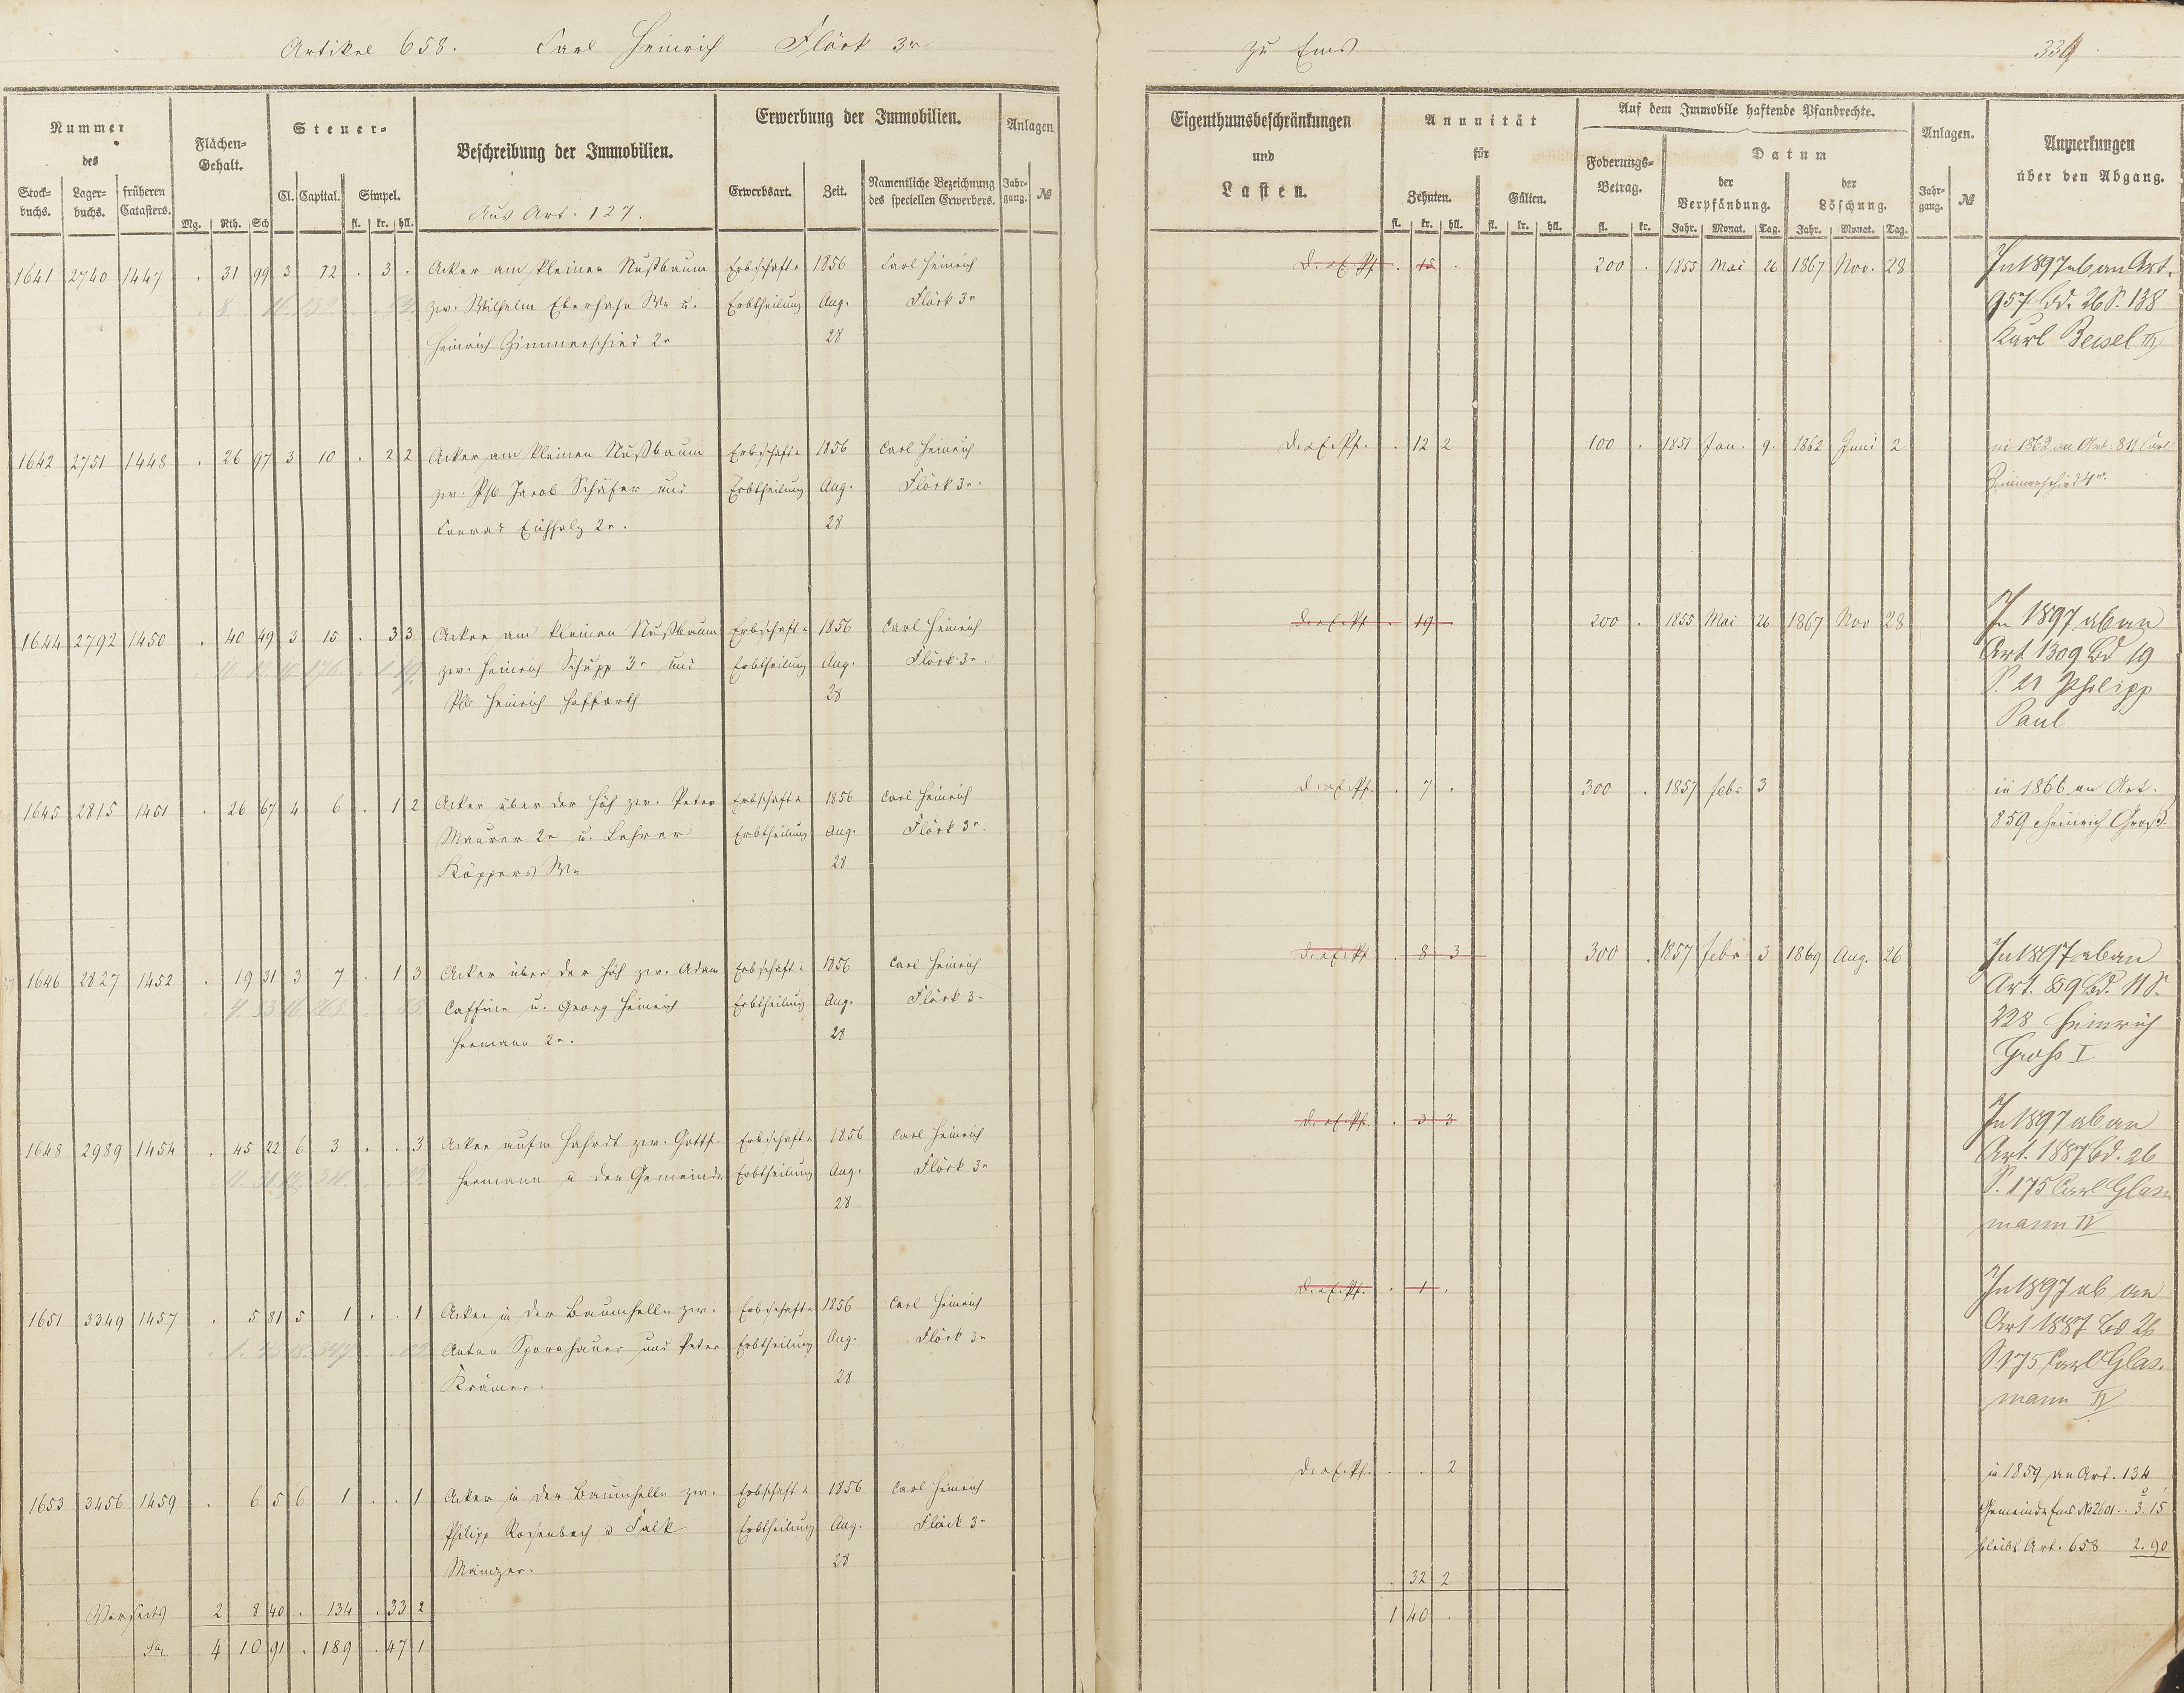 Artikel 658. Carl Heinrich Flöck 3r
zu Ems
Nummer des
Stock-buchs. Lager-buchs. früheren Catasters.
Flächen-Gehalt.
Mg. Rth. Sch
Steuer-
Cl. Capital. Simpel.
fl. kr. hll.
Beschreibung der Immobilien.
Aus Art. 127.
Erwerbung der Immobilien.
Erwerbsart. Zeit. Namentliche Bezeichnung des speciellen Erwerbers.
Anlagen
Jahr-gang. №
Eigenthumsbeschränkungen und Lasten.
Annuität für
Zehnten. Gülten.
fl. kr. hll. fl. kr. hll.
Auf dem Immobile haftende Pfandrechte.
Foderungs-Betrag.
fl. kr.
Datum
der Verpfändung. der Löschung.
Jahr. Monat. Tag. Jahr. Monat. Tag.
Anlagen.
Jahr-gang. №
Anmerkungen über den Abgang.
1641 2740 1447 . 31 99 3 12 . 3 . Acker am kleinen Nußbaum Erbschaft u. 1856 Carl Heinrich
zw. Wilhelm Eberhahn We u. Erbtheilung Aug. Flöck 3r
Heinrich Zimmerschied 2r 28
D. . 15 . 200 . 1855 Mai 26 1867 Nov. 28 In 1897 ab an Art.
957 Bd. 26 S. 138
Karl Beisel III
1642 2751 1448 . 26 97 3 10 . 2 2 Acker am kleinen Nußbaum Erbschaft u. 1856 Carl Heinrich
zw. Phl Jacob Schäfer und Erbtheilung Aug. Flöck 3r.
Conrad Eichholz 2r. 28
. 12 2 100 . 1851 Jan. 9. 1862 Juni 2 in 1862 an Art. 811 Carl
Zimmerschied 4r.
1644 2792 1450 . 40 49 3 15 . 3 3 Acker am kleinen Nußbaum Erbschaft u. 1856 Carl Heinrich
zw. Heinrich Schupp 3r und Erbtheilung Aug. Flöck 3r.
Phl Heinrich Hofferth 28
. 19 200 . 1855 Mai 26 1867 Nov 28 In 1897 ab an
Art 1309 Bd 19
S. 21 Philipp
Paul
1645 2815 1451 . 26 67 4 6 . 1 2 Acker über der Höh zw. Peter Erbschaft u 1856 Carl Heinrich
Maurer 2r u. Lehrer Erbtheilung Aug. Flöck 3r.
Köppers We 28
. 7 . 300 . 1857 Febr 3 in 1866 an Art.
859 Heinrich Groß.
1646 2827 1452 . 19 31 3 7 . 1 3 Acker über der Höh zw. Adam Erbschaft u. 1856 Carl Heinrich
Caffine u. Georg Heinrich Erbtheilung Aug. Flöck 3r
Hermann 2r. 28
. 8 3 300 . 1857 Febr 3 1869 Aug. 26 In 1897 ab an
Art. 859 Bd. 11 S.
228 Heinrich
Groß I
1648 2989 1454 . 45 22 6 3 . . 3 Acker aufm Hahrdt zw. Gottf. Erbschaft u 1856 Carl Heinrich
Hermann u der Gemeinde Erbtheilung Aug. Flöck 3r
28
. 3 3 In 1897 ab an
Art. 1887 Bd. 26
S. 175 Carl Glas-
mann IV
1651 3349 1457 . 5 81 5 1 . . 1 Acker in der Baumhelle zw. Erbschaft u 1856 Carl Heinrich
Anton Spornhauer und Peter Erbtheilung Aug. Flöck 3r
Krämer. 28
. 1 . In 1897 ab an
Art 1887 Bd 26
S 175 Carl Glas-
mann IV
1653 3456 1459 . 6 5 6 1 . . 1 Acker in der Baumhelle zw. Erbschaft u 1856 Carl Heinrich
Philipp Rossenbach u Falk Erbtheilung Aug. Flöck 3r
Mainzer. 28
. . 2 in 1859 an Art. 134
Gemeinde Ems No 2601 . . 3. 15
bleibt Art. 658 2. 90
. 32 2
Vorseite 2 8 40 . 134 . 33 2
1 40 .
Sa. 4 10 91 . 189 . 47 1